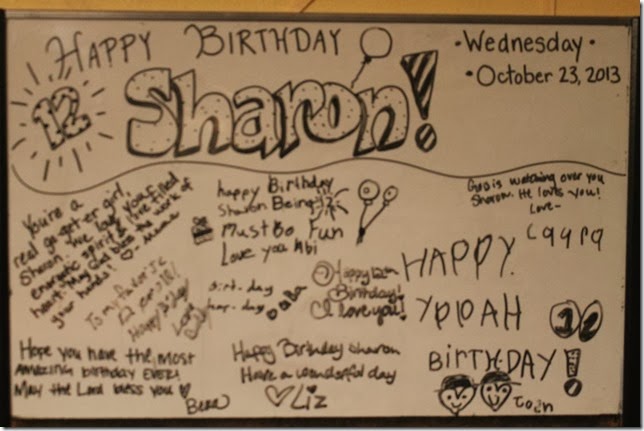 HAPPY BIRTHDAY
12 Sharon!
• Wednesday •
• October 23, 2013
You're a
real go-getter girl,
Sharon. I've love you filled
energetic spirit & love filled
heart. May God bless the work of
your hands!
happy Birthday
Sharon Being 12
Must Be Fun
Love you Abi
God is watching over you
Sharon. He loves you!
Love-
To my favorite
12 er
Happy B-day
Love
Birt-day
Happy 12th
Birthday!
I love you!
HAPPY
12
BIRTH-DAY!
Hope you have the most
AMAZING birthday EVER!
May the Lord bless you
Happy Birthday Sharon
Have a wonderful day
Liz